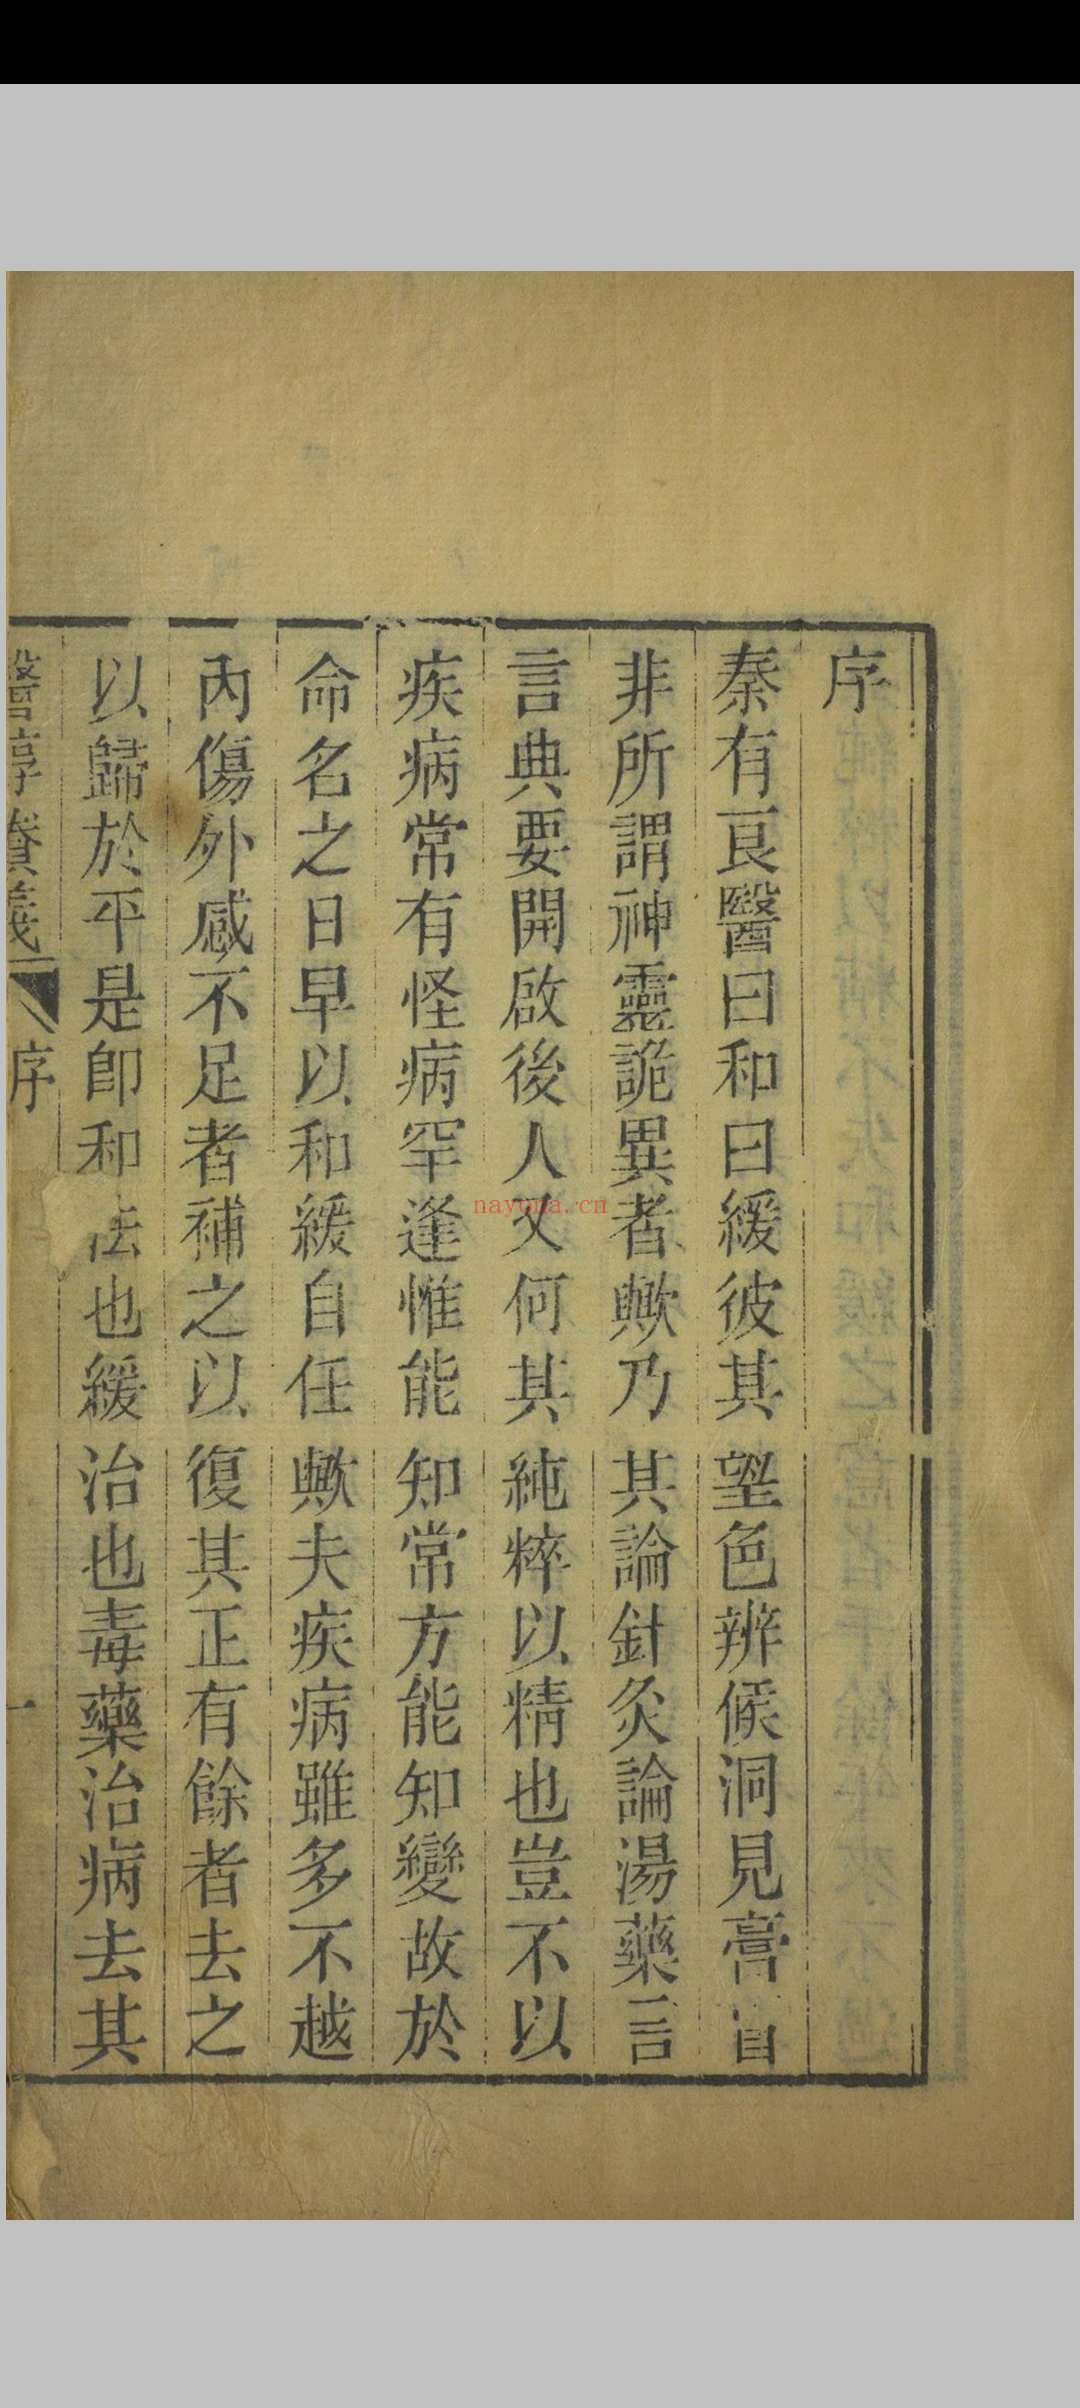 序
秦有良醫曰和曰緩彼其望色辨候洞見膏肓
非所謂神靈詭異者歟乃其論針灸論湯藥言
言典要開啟後人又何其純粹以精也豈不以
疾病常有怪病罕逢惟能知常方能知變故於
命名之日早以和緩自任歟夫疾病雖多不越
內傷外感不足者補之以復其正有餘者去之
以歸於平是卽和法也緩治也毒藥治病去其
醫淳賸義
序
一
nayona.cn